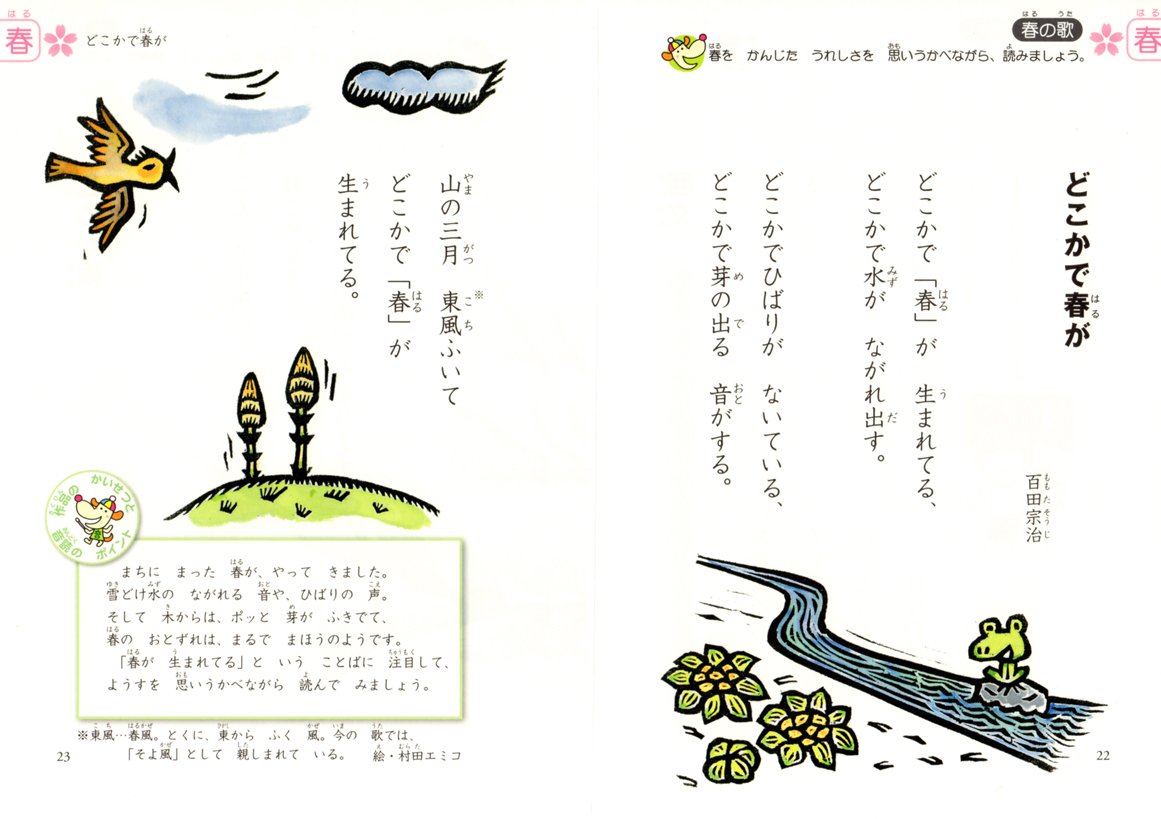 春
春の歌
春を　かんじた　うれしさを　思いうかべながら、読みましょう。
どこかで春が
百田宗治
どこかで「春」が　生まれてる、
どこかで水が　ながれ出す。
どこかでひばりが　ないている、
どこかで芽の出る　音がする。
22
春
どこかで春が
山の三月　東風※ふいて
どこかで「春」が
生まれてる。
作品の　かいせつと
音読の　ポイント
まちに　まった　春が、やって　きました。
雪どけ水の　ながれる　音や、ひばりの　声。
そして　木からは、ポッと　芽が　ふきでて、
春の　おとずれは、まるで　まほうのようです。
「春が　生まれてる」と　いう　ことばに　注目して、
ようすを　思いうかべながら　読んで　みましょう。
※東風…春風。とくに、東から　ふく　風。今の　歌では、
「そよ風」として　親しまれて　いる。
絵・村田エミコ
23